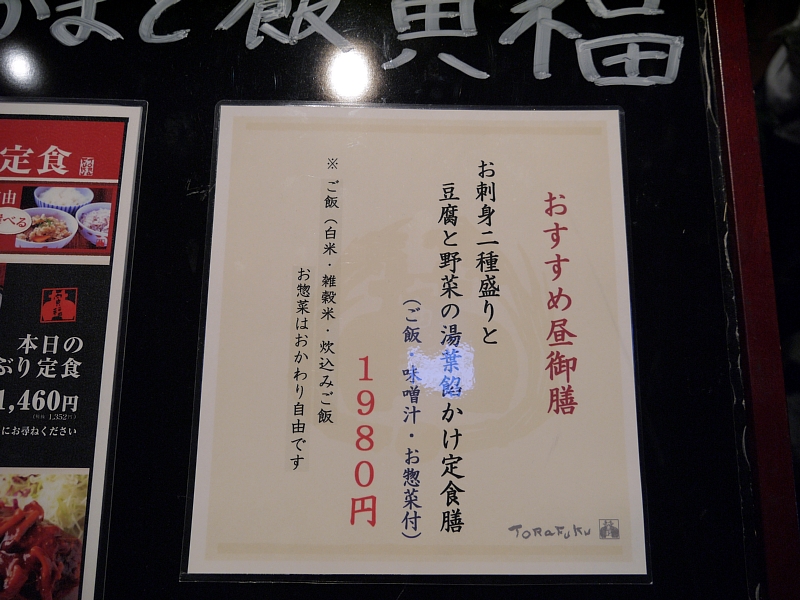 かまど飯 寅福
おすすめ昼御膳
お刺身二種盛りと
豆腐と野菜の湯葉餡かけ定食膳
（ご飯・味噌汁・お惣菜付）
1980円
※ご飯（白米・雑穀米・炊込みご飯
お惣菜はおかわり自由です
TORAFUKU
定食
由
べる
本日の
ぶり定食
1,460円
にお尋ねください